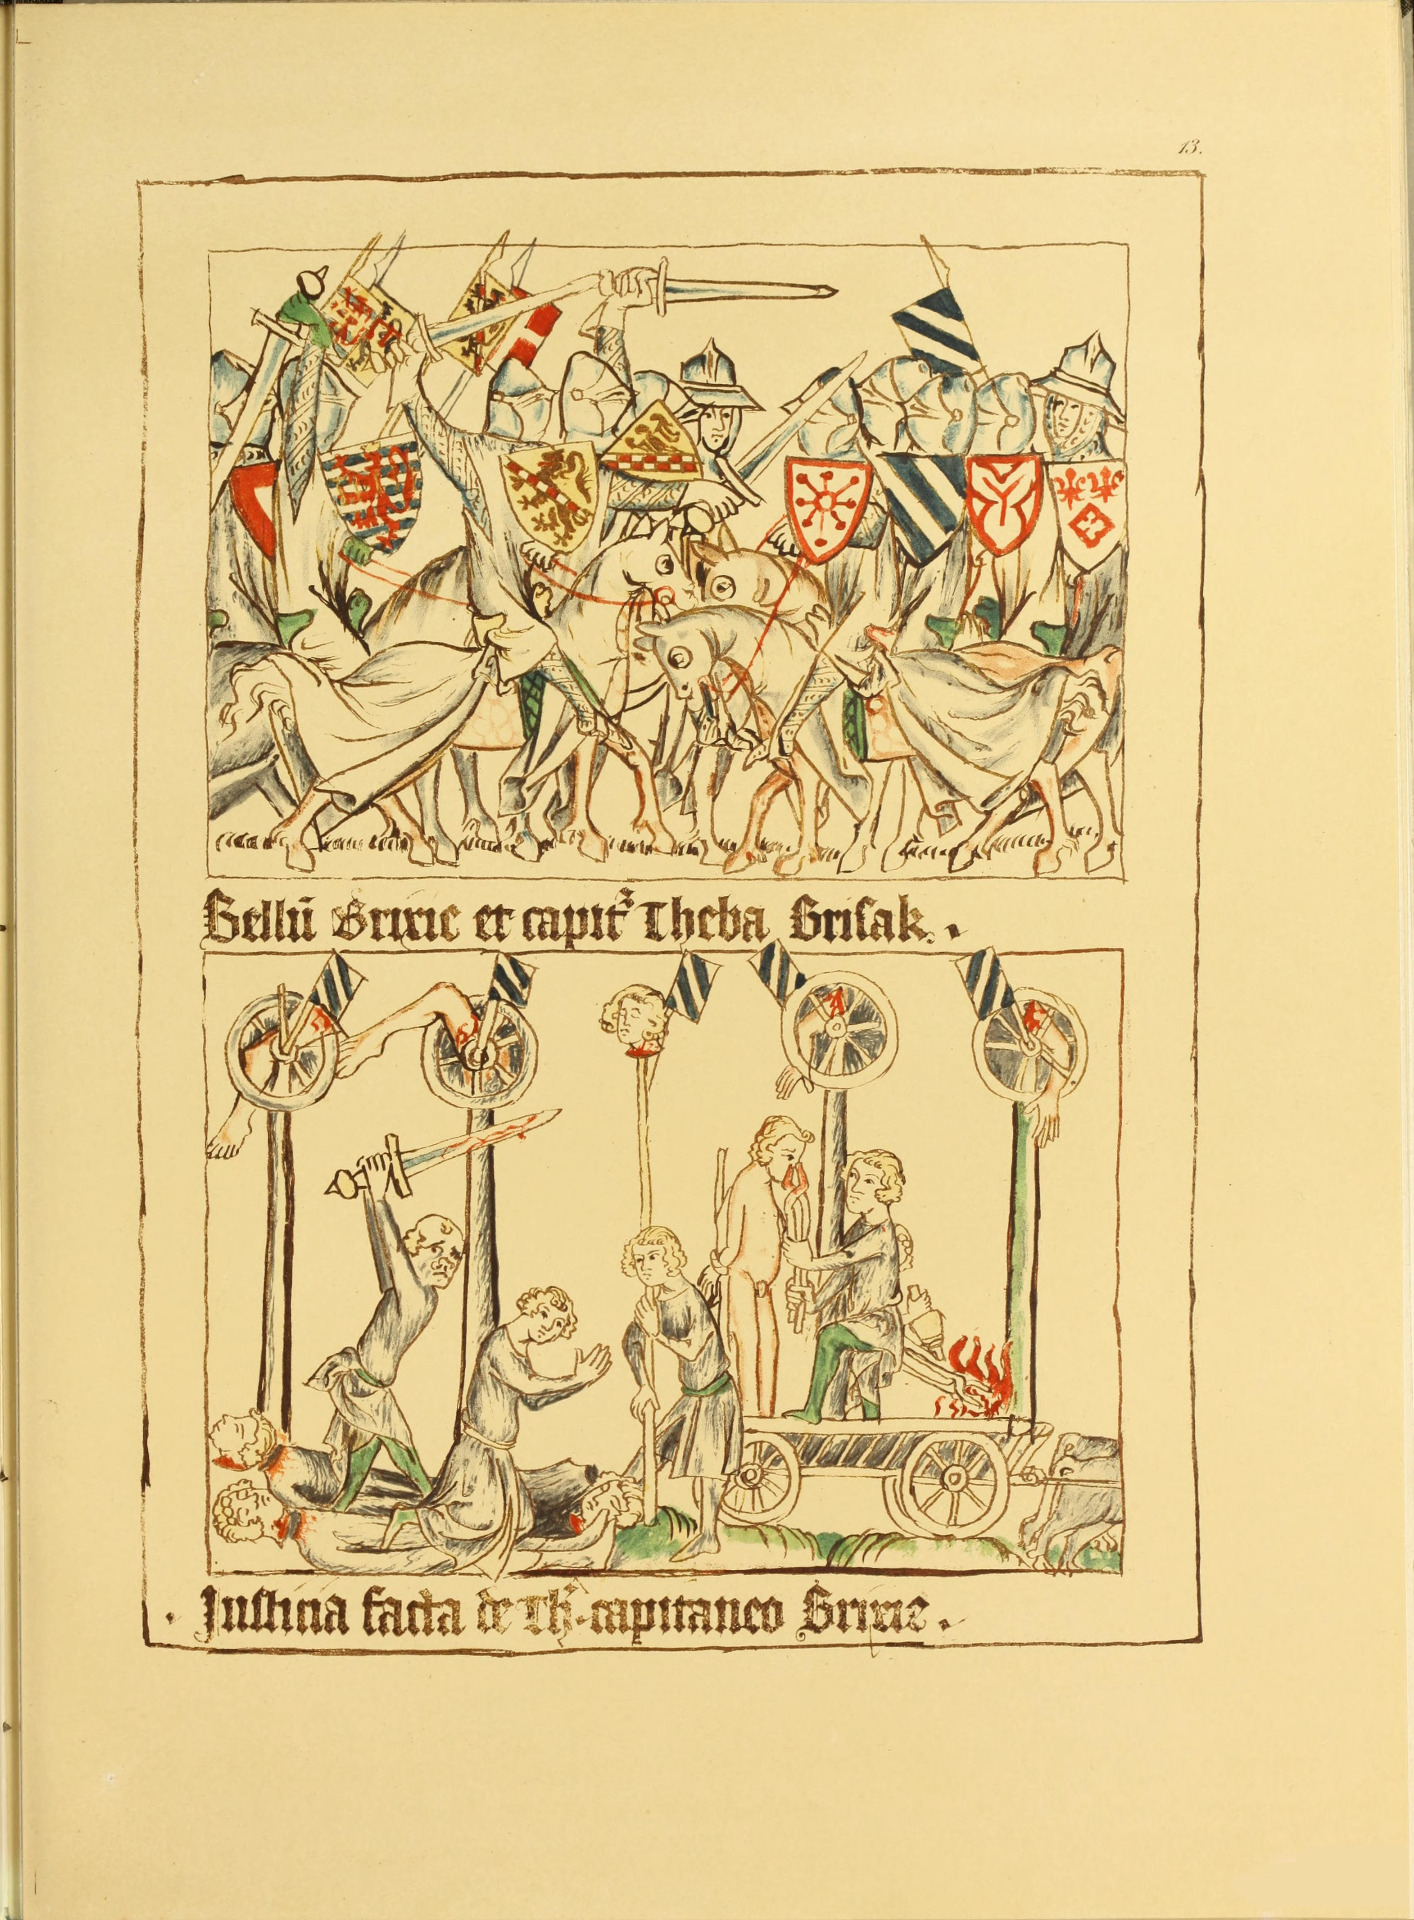 13.
Bellū Brixie et capit͛ Theba Brisak.
. Justicia facta de Th͛. capitaneo Brixie.